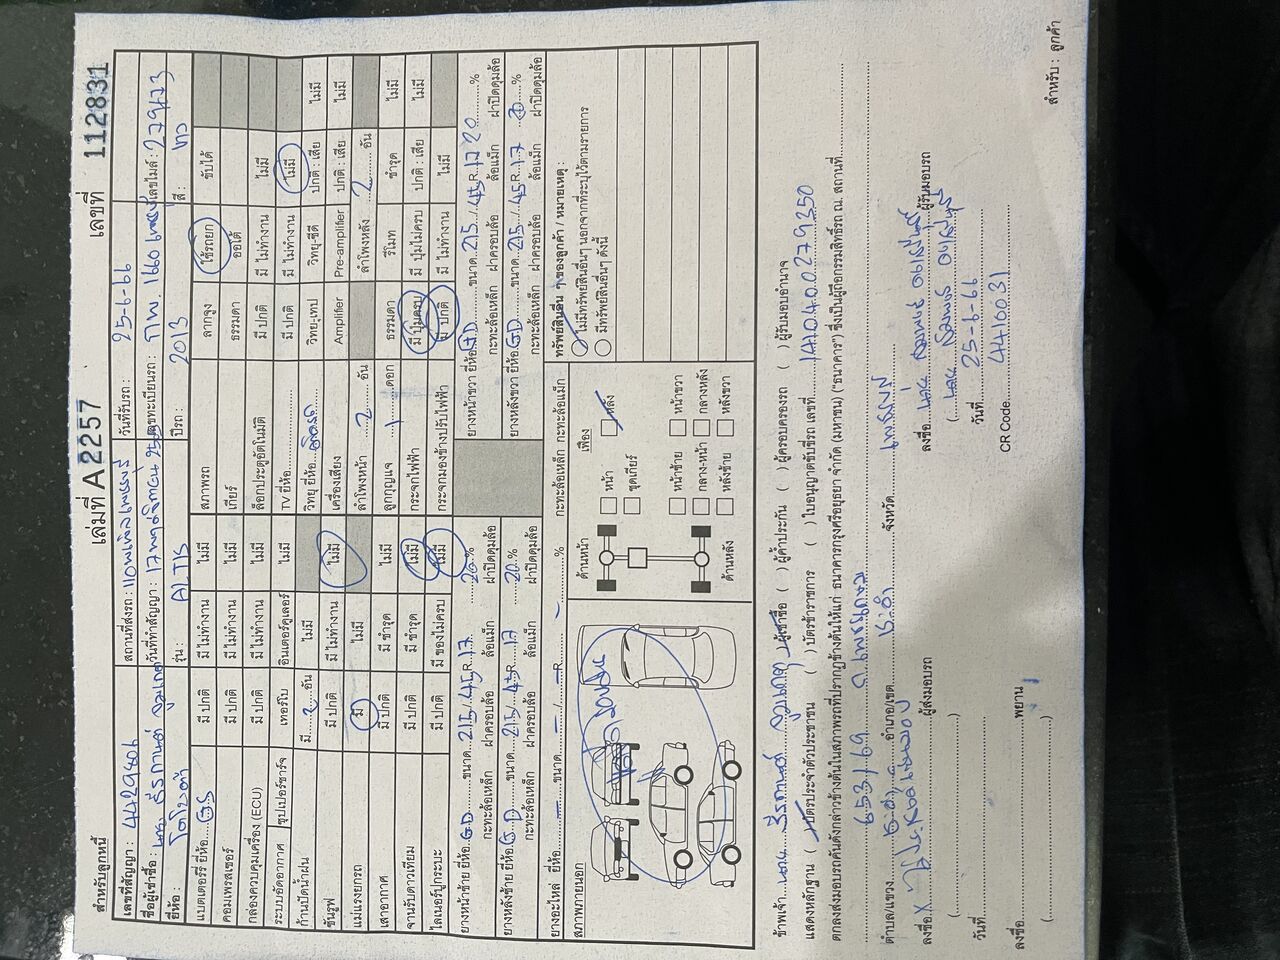 เล่มที่ A2257 เลขที่ 112831
สำหรับลูกหนี้
เลขที่สัญญา : สถานที่ส่งรถ : วันที่รับรถ : 25-6-66
ชื่อผู้เช่าซื้อ : วันที่ทำสัญญา : เลขทะเบียนรถ : เลขไมล์ : 279473
ยี่ห้อ : โตโยต้า รุ่น : ALTIS ปีรถ : 2013 สี : เทา
แบตเตอรี่ ยี่ห้อ GS มี ปกติ มี ไม่ทำงาน ไม่มี สภาพรถ ลากจูง ใช้รถยก ขับได้
คอมเพรสเซอร์ มี ปกติ มี ไม่ทำงาน ไม่มี เกียร์ ธรรมดา ออโต้
กล่องควบคุมเครื่อง (ECU) มี ปกติ มี ไม่ทำงาน ไม่มี ล็อกประตูอัตโนมัติ มี ปกติ มี ไม่ทำงาน ไม่มี
ระบบอัดอากาศ ซุปเปอร์ชาร์จ เทอร์โบ อินเตอร์คูเลอร์ ไม่มี TV ยี่ห้อ มี ปกติ มี ไม่ทำงาน ไม่มี
ก้านปัดน้ำฝน มี 2 อัน ไม่มี วิทยุ ยี่ห้อ วิทยุ-เทป วิทยุ-ซีดี ปกติ : เสีย ไม่มี
ซันรูฟ มี ปกติ มี ไม่ทำงาน ไม่มี เครื่องเสียง Amplifier Pre-amplifier ปกติ : เสีย ไม่มี
แม่แรงยกรถ มี ไม่มี ลำโพงหน้า 2 อัน ลำโพงหลัง 2 อัน
เสาอากาศ มี ปกติ มี ชำรุด ไม่มี ลูกกุญแจ 1 ดอก ธรรมดา รีโมท ชำรุด ไม่มี
จานรับดาวเทียม มี ปกติ มี ชำรุด ไม่มี กระจกไฟฟ้า มี ปุ่มครบ มี ปุ่มไม่ครบ ปกติ : เสีย ไม่มี
ไลเนอร์ปูกระบะ มี ปกติ มี ของไม่ครบ ไม่มี กระจกมองข้างปรับไฟฟ้า มี ปกติ มี ไม่ทำงาน ไม่มี
ยางหน้าซ้าย ยี่ห้อ GD ขนาด 215/45R17 20% ยางหน้าขวา ยี่ห้อ GD ขนาด 215/45R17 20%
กะทะล้อเหล็ก ฝาครอบล้อ ล้อแม็ก ฝาปิดดุมล้อ กะทะล้อเหล็ก ฝาครอบล้อ ล้อแม็ก ฝาปิดดุมล้อ
ยางหลังซ้าย ยี่ห้อ GD ขนาด 215/45R17 20% ยางหลังขวา ยี่ห้อ GD ขนาด 215/45R17 %
กะทะล้อเหล็ก ฝาครอบล้อ ล้อแม็ก ฝาปิดดุมล้อ กะทะล้อเหล็ก ฝาครอบล้อ ล้อแม็ก ฝาปิดดุมล้อ
ยางอะไหล่ ยี่ห้อ - ขนาด - / - R - % กะทะล้อเหล็ก กะทะล้อแม็ก
ทรัพย์สินอื่น ๆ ของลูกค้า / หมายเหตุ :
ไม่มีทรัพย์สินอื่นๆ นอกจากที่ระบุไว้ตามรายการ
มีทรัพย์สินอื่นๆ ดังนี้
สภาพภายนอก
ด้านหน้า
เฟือง
หน้า หลัง
ชุดเกียร์
หน้าซ้าย หน้าขวา
กลาง-หน้า กลางหลัง
ด้านหลัง หลังซ้าย หลังขวา
ข้าพเจ้า ( ) ผู้เช่าซื้อ ( ) ผู้ค้ำประกัน ( ) ผู้ครอบครองรถ ( ) ผู้รับมอบอำนาจ
แสดงหลักฐาน ( ) บัตรประจำตัวประชาชน ( ) บัตรข้าราชการ ( ) ใบอนุญาตขับขี่รถ เลขที่
ตกลงส่งมอบรถคันดังกล่าวข้างต้นในสภาพรถที่ปรากฏข้างต้นให้แก่ ธนาคารกรุงศรีอยุธยา จำกัด (มหาชน) ("ธนาคาร") ซึ่งเป็นผู้ถือกรรมสิทธิ์รถ ณ. สถานที่
653/69
ตำบล/แขวง อำเภอ/เขต จังหวัด เพชรบุรี
ลงชื่อ X ผู้ส่งมอบรถ ลงชื่อ ผู้รับมอบรถ
( ) ( )
วันที่ วันที่ 25-6-66
ลงชื่อ พยาน CR Code 4410031
( )
สำหรับ : ลูกค้า